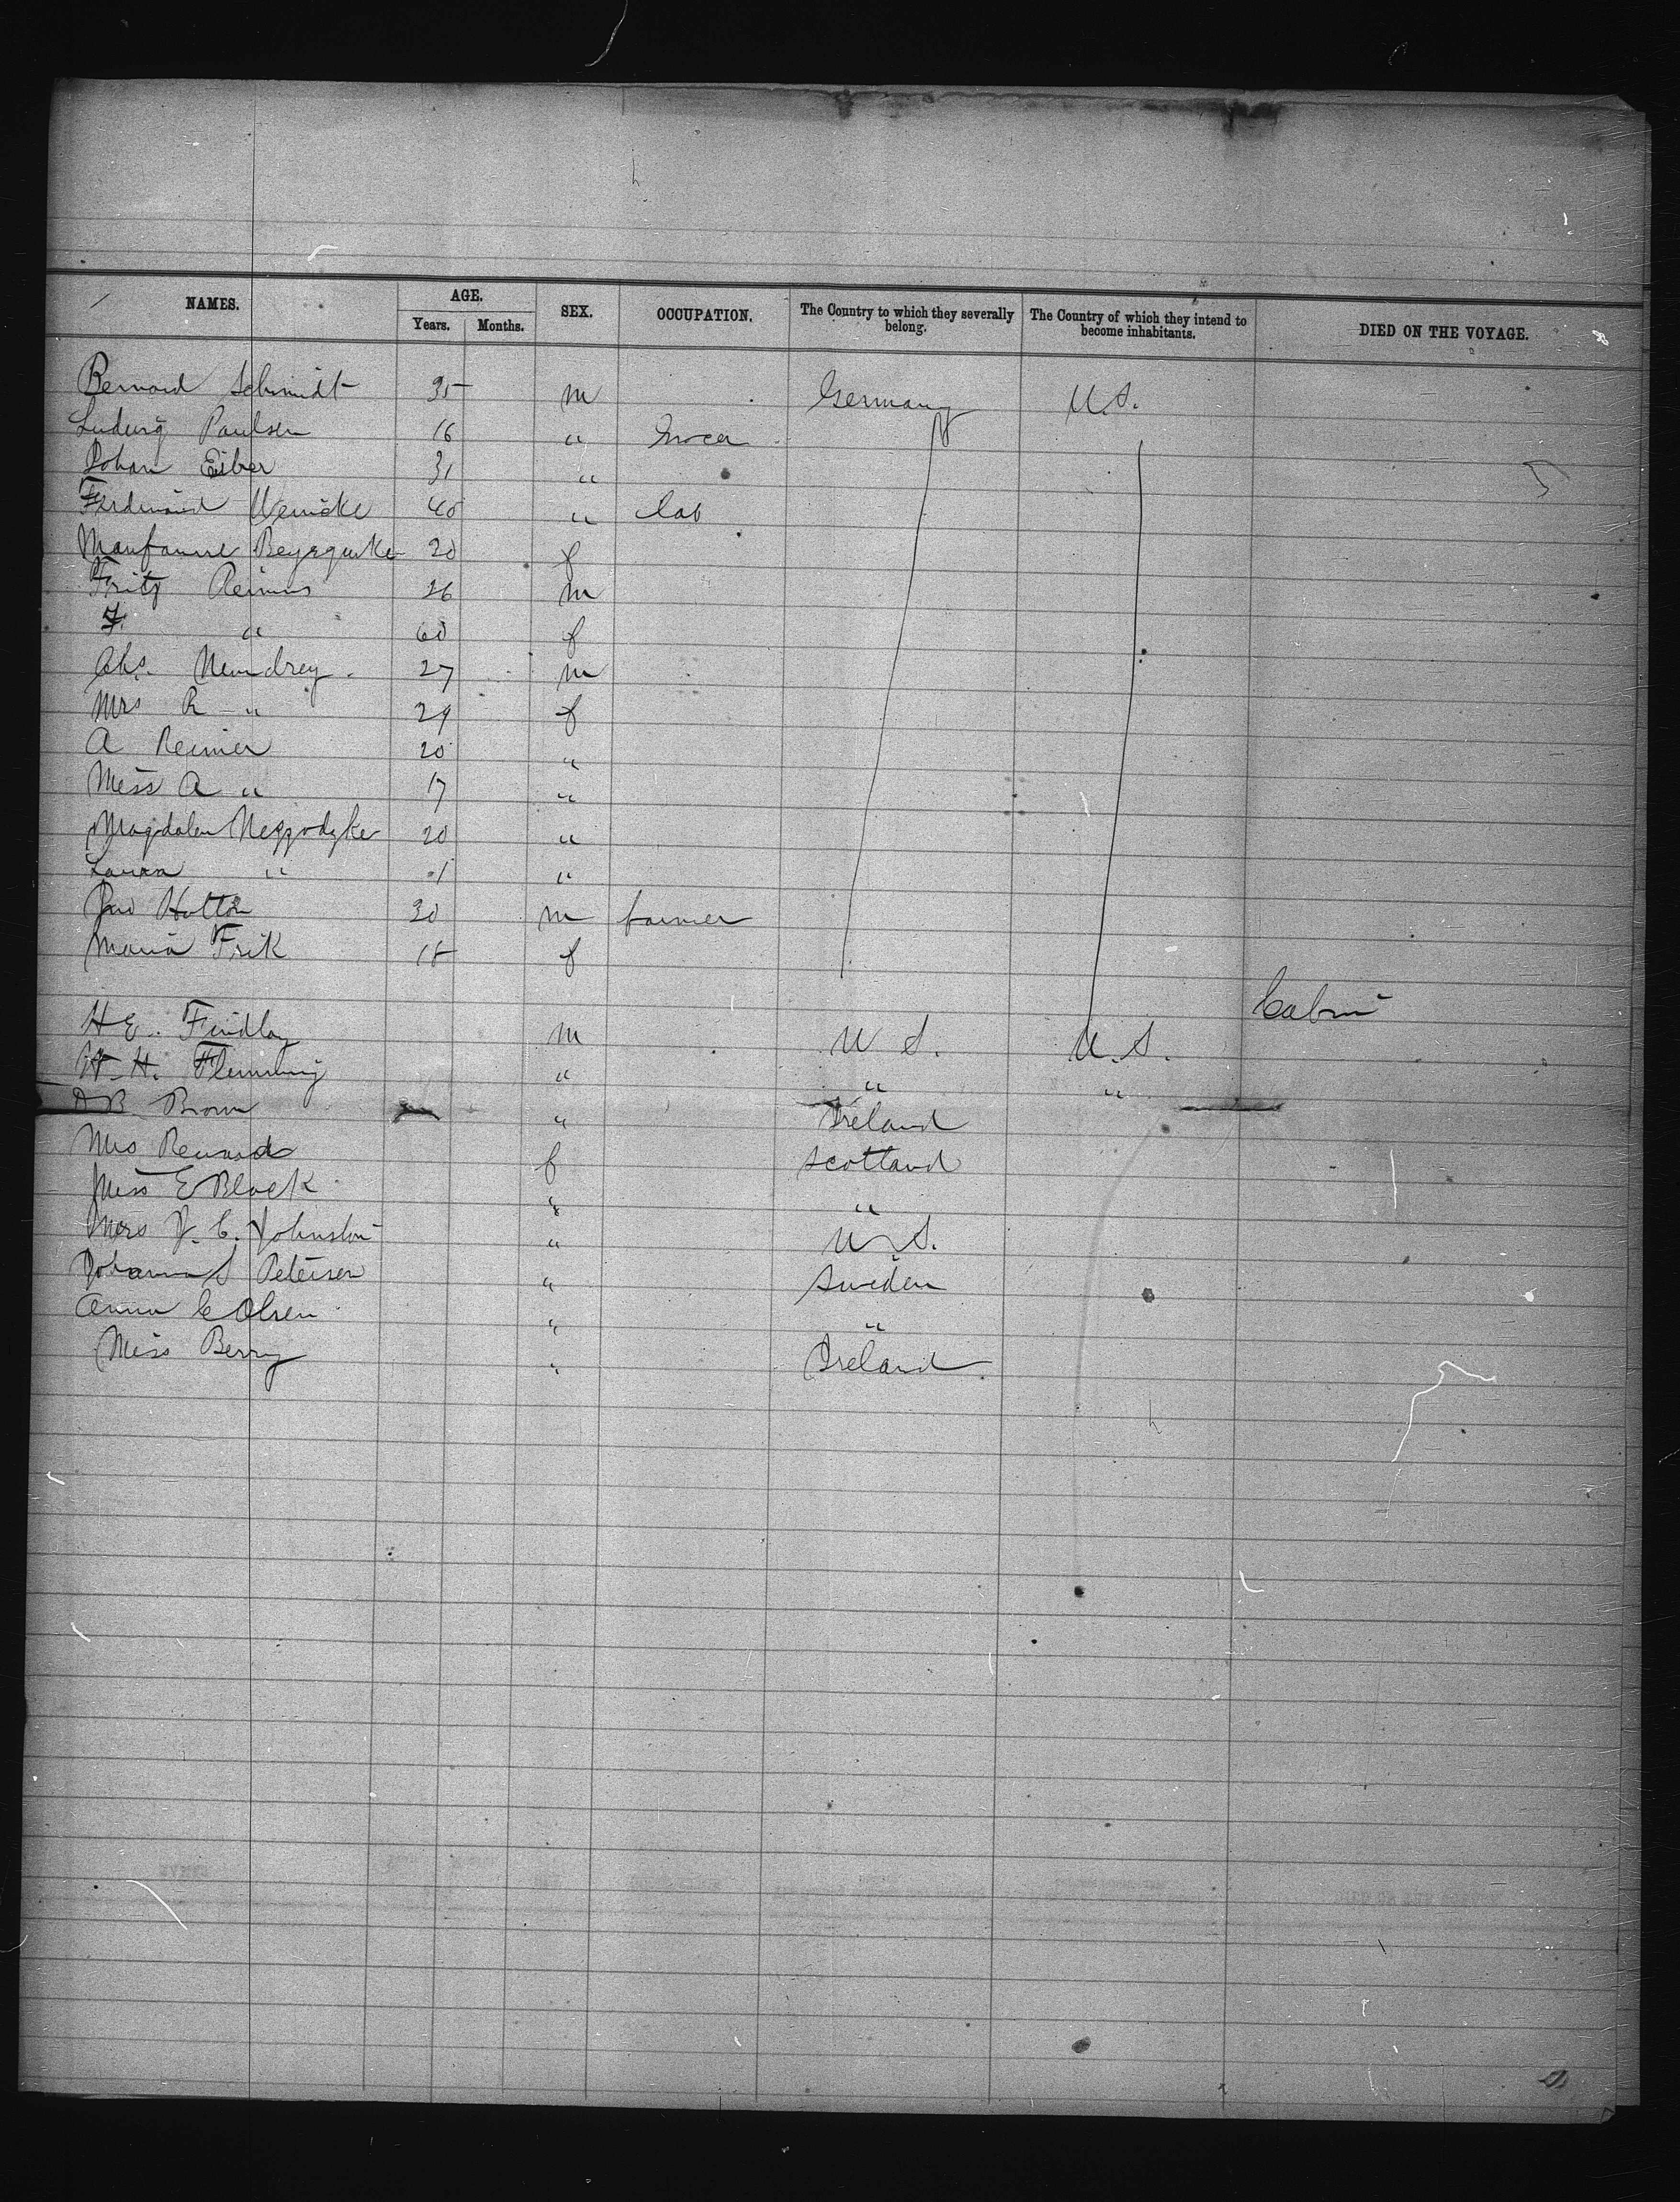 NAMES. AGE. SEX. OCCUPATION. The Country to which they severally belong. The Country of which they intend to become inhabitants. DIED ON THE VOYAGE.
Years. Months.
Bernard Schmidt 35 m Germany U.S.
Ludwig Paulsen 16 " Grocer
Johan Eiber 31 "
Ferdinand Wernicke 40 " lab
20 f
Fritz Reimus 26 m
F. " 60 f
Chs. Neundrey 27 m
Mrs R " 29 f
A Reimer 20 "
Miss A " 17 "
Magdalen 20 "
Laura " 1 "
Jno Hutton 30 m farmer
Maria Frik 18 f
Cabin
H E. Findlay m U S. U.S.
W. H. Flemming " " "
D B Brown " Ireland
Mrs Renard f Scotland
Miss E Black " "
Mrs J. C. Johnston " U.S.
Johanna S Petersen " Sweden
Anna C Olsen " "
Miss Berry " Ireland.